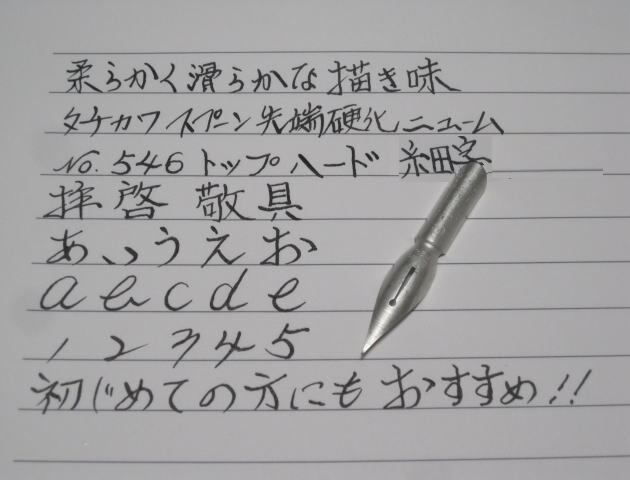 柔らかく滑らかな描き味
タチカワ スプーン 先端硬化ニューム
No. 546 トップハード 細字
拝啓 敬具
あいうえお
a b c d e
1 2 3 4 5
初じめての方にもおすすめ!!